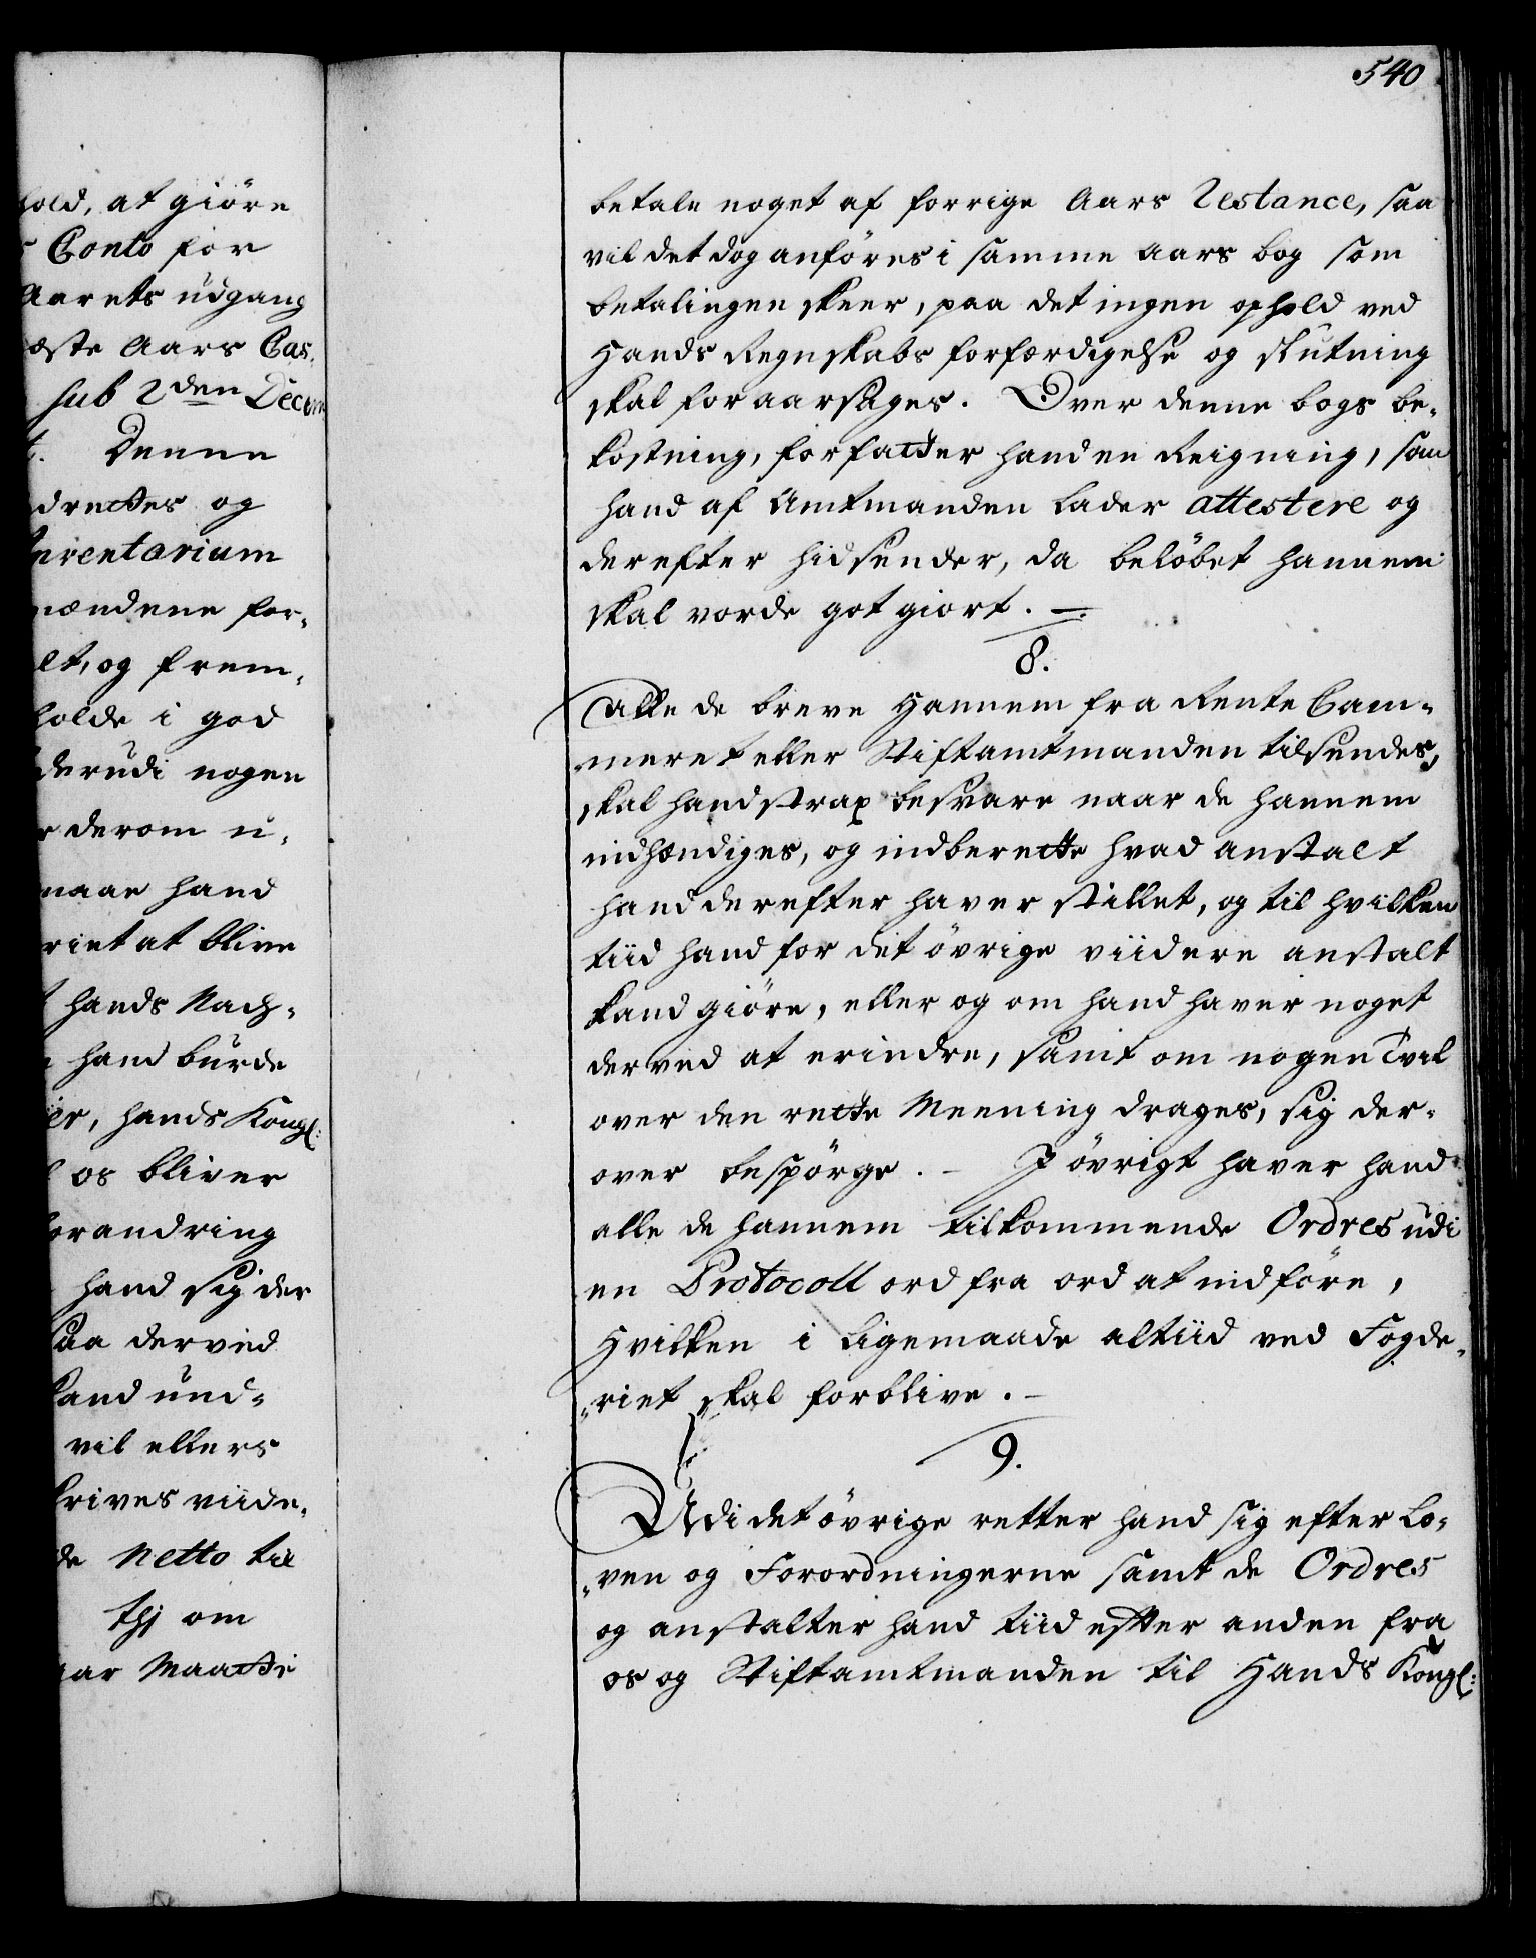 540
hold, at giöre
Conto for
Aarets udgang
æste Aars Cas¬
sub 2den Decem
Denne
drettes og
Inventarium
mændene for¬
elt, og frem¬
holde i god
derudi nogen
derom u¬
naar hand
riet at blive
hands Nach¬
hand burde
er, hands Kongl:
os bliver
forandring
hand sig der
saa derved
kand und¬
vil ellers
krives viide¬
de Netto til
thj om
aar Maatte
betale noget af forrige Aars Restance, saa
vil det dog anföres i samme Aars bog som
betalingen skeer, paa det ingen ophold ved
Hands Regnskabs forfærdigelse og slutning
skal foraarsages. Over denne bogs be¬
kostning, forfatter hand en Reigning, som
hand af Amtmanden lader attestere og
derefter hidsender, da belöbet hannem
skal vorde got giort. —
8.
Alle de breve Hannem fra Rente Cam¬
meret eller Stiftamtmanden tilsendes,
skal hand strax besvare naar de hannem
indhændiges, og indberette hvad anstalt
hand derefter haver stillet, og til hvilken
tiid hand for det övrige viidere anstalt
kand giöre, eller og om hand haver noget
derved at erindre, samt om nogen Tvil
over den rette Meening drages, sig der¬
over bespörge. – I övrigt haver hand
alle de hannem tilkommende Ordres udi
en Protocoll ord fra ord at indföre,
Hvilken i ligemaade altiid ved Fogde¬
riet skal forblive. –
9.
Udi det övrige retter hand sig efter Lo¬
ven og Forordningerne samt de Ordres
og anstalter hand tiid efter anden fra
os og Stiftamtmanden til Hands Kongl: